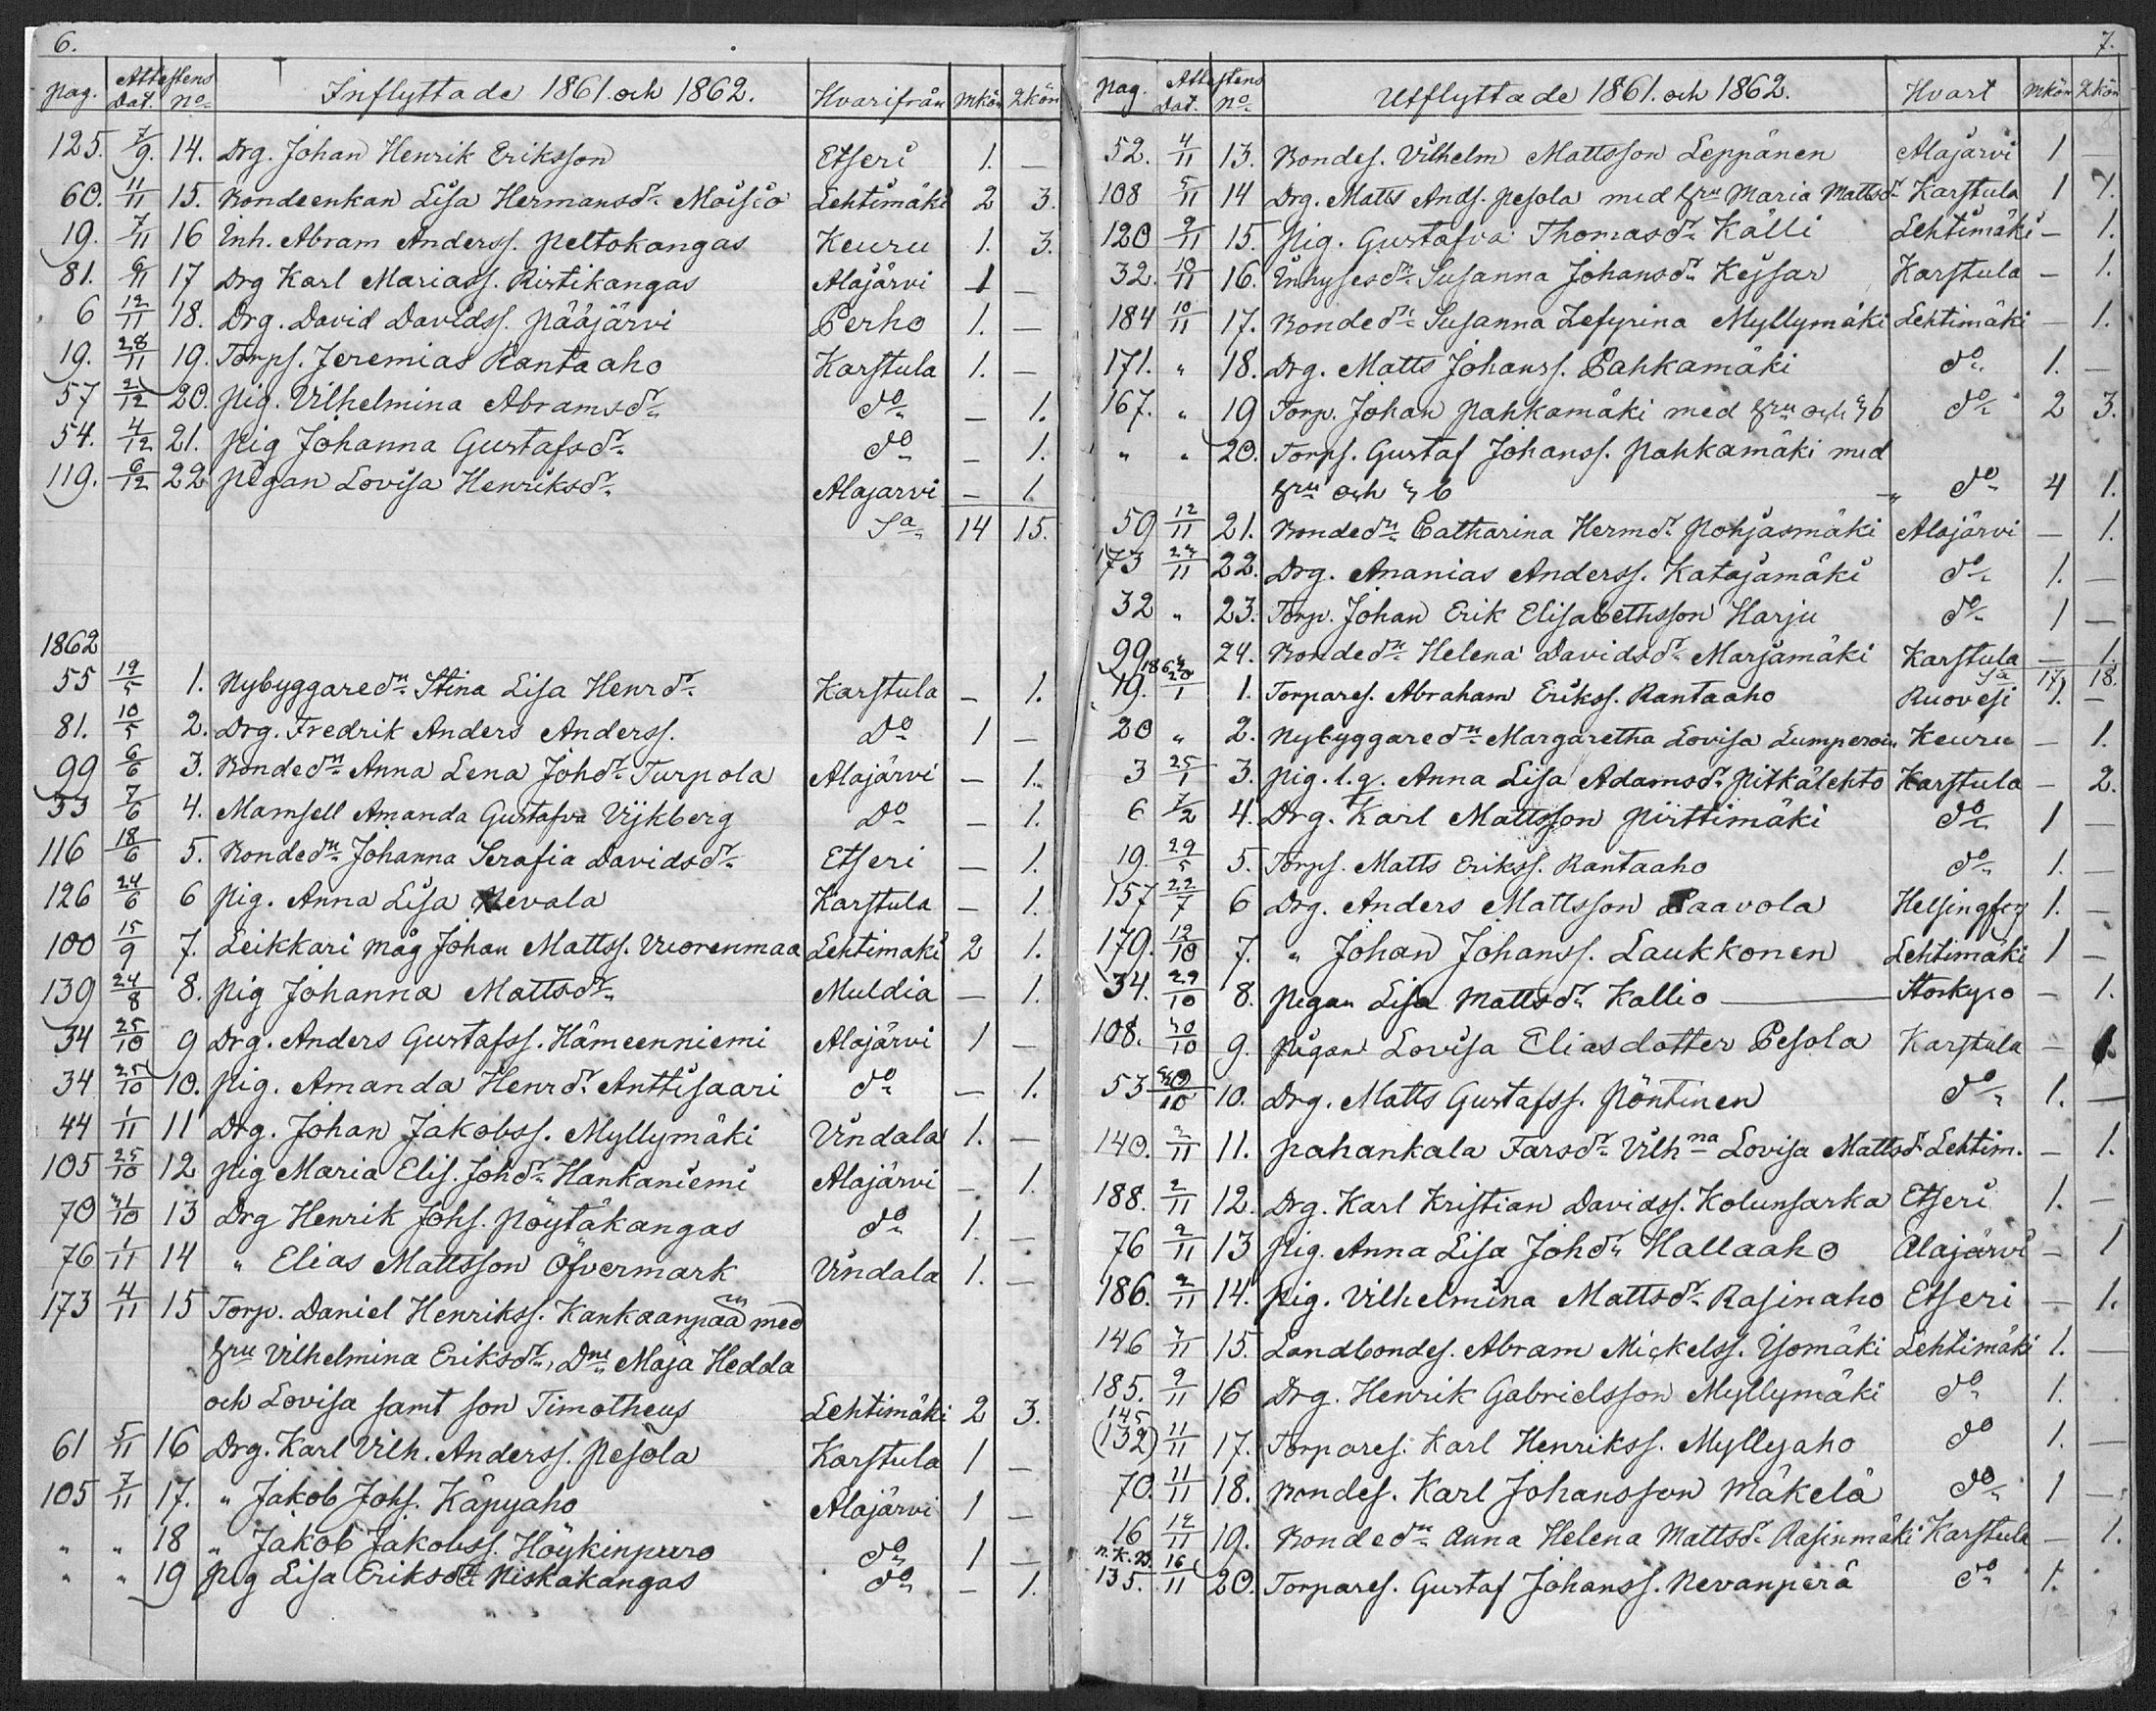 6.
pag. Attestens Dat. No Inflyttade 1861. och 1862. Hvarifrån Mkön Qkön
125. 7/9. 14. Drg. Johan Henrik Eriksson Etseri 1. —
60. 11/11 15. Bondeenkan Lisa Hermansdr Moisio Lehtimäki 2 3.
19. 7/11 16 Inh. Abram Anderss. Peltokangas Keuru 1. 3.
81. 6/11 17 Drg Karl Mariass. Ristikangas Alajärvi 1 —
6 12/11 18. Drg. David Davidss. Pääjärvi Perho 1. —
19. 28/11 19. Torps. Jeremias Rantaaho Karstula 1. —
57 2/12 20. Pig. Vilhelmina Abramsdr do — 1.
54. 4/12 21. Pig Johanna Gustafsdr do — 1.
119. 6/12 22 Pigan Lovisa Henriksdr Alajarvi — 1
Sa 14 15.
1862
55 19/5 1. Nybyggaredn Stina Lisa Henrdr Karstula — 1.
81. 10/5 2. Drg. Fredrik Anders Anderss. Do 1 —
99 6/6 3. Bondedn Anna Lena Johdr Turpola Alajärvi — 1.
53 7/6 4. Mamsell Amanda Gustafva Vijkberg Do — 1.
116 18/6 5. Bondedn Johanna Serafia Davidsdr Etseri — 1.
126 24/6 6 Pig. Anna Lisa Nevala Karstula — 1.
100 15/9 7. Leikkari måg Johan Mattss. Vuorenmaa Lehtimaki 2 1.
139 24/8 8. Pig Johanna Mattsdr Muldia — 1.
34 25/10 9 Drg. Anders Gustafss. Hämeenniemi Alajärvi 1 —
34 25/10 10. Pig. Amanda Henrdr Anttisaari do — 1.
44 1/11 11 Drg. Johan Jakobss. Myllymäki Vindala 1. —
105 25/10 12 Pig Maria Elis. Johdr Hankaniemi Alajärvi — 1.
70 31/10 13 Drg Henrik Johs. Pöytäkangas do 1. —
76 1/11 14 " Elias Mattsson Öfvermark Vindala 1. —
173 4/11 15 Torp. Daniel Henrikss. Kankaanpää med
hru Vilhelmina Eriksdr, Dne Maja Hedda
och Lovisa samt son Timotheus Lehtimäki 2 3.
61 5/11 16 Drg. Karl Vilh. Anderss. Pesola Karstula 1 —
105 7/11 17. " Jakob Johs. Käpyaho Alajärvi 1 —
" " 18 " Jakob Jakobss. Höykinpuro do 1 —
" " 19 Pig Lisa Eriksdr Niskakangas do — 1.
7.
pag. Attestens Dat. No Utflyttade 1861. och 1862. Hvart Mkön Qkön
52. 4/11 13. Bondes. Vilhelm Mattsson Leppänen Alajärvi 1 —
108 5/11 14 Drg. Matts Ands. Pesola med hru Maria Mattsdr Karstula 1 1.
120 9/11 15. Pig. Gustafva Thomasdr Källi Lehtimäki — 1.
32. 10/11 16. Inhysesdn Susanna Johansdr Kejsar Karstula — 1.
184 10/11 17. Bondedn Susanna Zefyrina Myllymäki Lehtimäki — 1.
171. " 18. Drg. Matts Johanss. Pahkamäki do 1. —
167. " 19 Torp. Johan Pahkamäki med hru och b do 2 3.
" " 20. Torps. Gustaf Johanss. Pahkamäki med
hru och b " do 4 1.
59 12/11 21. Bondedn Catharina Hermdr Pohjasmäki Alajärvi — 1.
173 23/11 22. Drg. Ananias Anderss. Katajamäki do 1. —
32 " 23. Torp. Johan Erik Elisabethsson Harju do 1 —
99 " 24. Bondedn Helena Davidsdr Marjamäki Karstula — 1.
Sa 17 18.
1862
19. 20/1 1. Torpares. Abraham Erikss. Rantaaho Ruovesi 1. —
20 " 2. Nybyggaredn Margaretha Lovisa Lumperoin Keuru — 1.
3 25/1 3. Pig. l.q. Anna Lisa Adamsdr Pitkälehto Karstula — 2.
6 7/2 4. Drg. Karl Mattsson Pirttimäki do 1 —
19. 29/5 5. Torps. Matts Erikss. Rantaaho do 1. —
157 22/7 6 Drg. Anders Mattsson Saavola Helsingfors 1. —
179. 12/10 7. " Johan Johanss. Laukkonen Lehtimäki 1 —
34. 29/10 8. Pigan Lisa Mattsdr Kallio — Storkyro — 1.
108. 30/10 9. Pigan Lovisa Eliasdotter Pesola Karstula — 1.
53 30/10 10. Drg. Matts Gustafss. Pöntinen do 1. —
140. 2/11 11. Pahankala Farsdr Vilhna Lovisa Mattsdr Lehtim. — 1.
188. 2/11 12. Drg. Karl Kristian Davidss. Kolunsarka Etseri 1. —
76 2/11 13 Pig. Anna Lisa Johdr Hallaaho Alajärvi — 1
186. 2/11 14. Pig. Vilhelmina Mattsdr Rasinaho Etseri — 1.
146 /11 15. Landbondes. Abram Mickelss. Isomäki Lehtimäki 1. —
185. 9/11 16 Drg. Henrik Gabrielsson Myllymäki do 1.
145
(132) 11/11 17. Torpares. Karl Henrikss. Myllyaho do 1. —
70. 11/11 18. Bondes. Karl Johansson Mäkelä do 1 —
16 12/11 19. Bondedn Anna Helena Mattsdr Rasinmäki Karstula — 1.
n.k.B.
135. 16/11 20. Torpares. Gustaf Johanss. Nevanperä do 1.